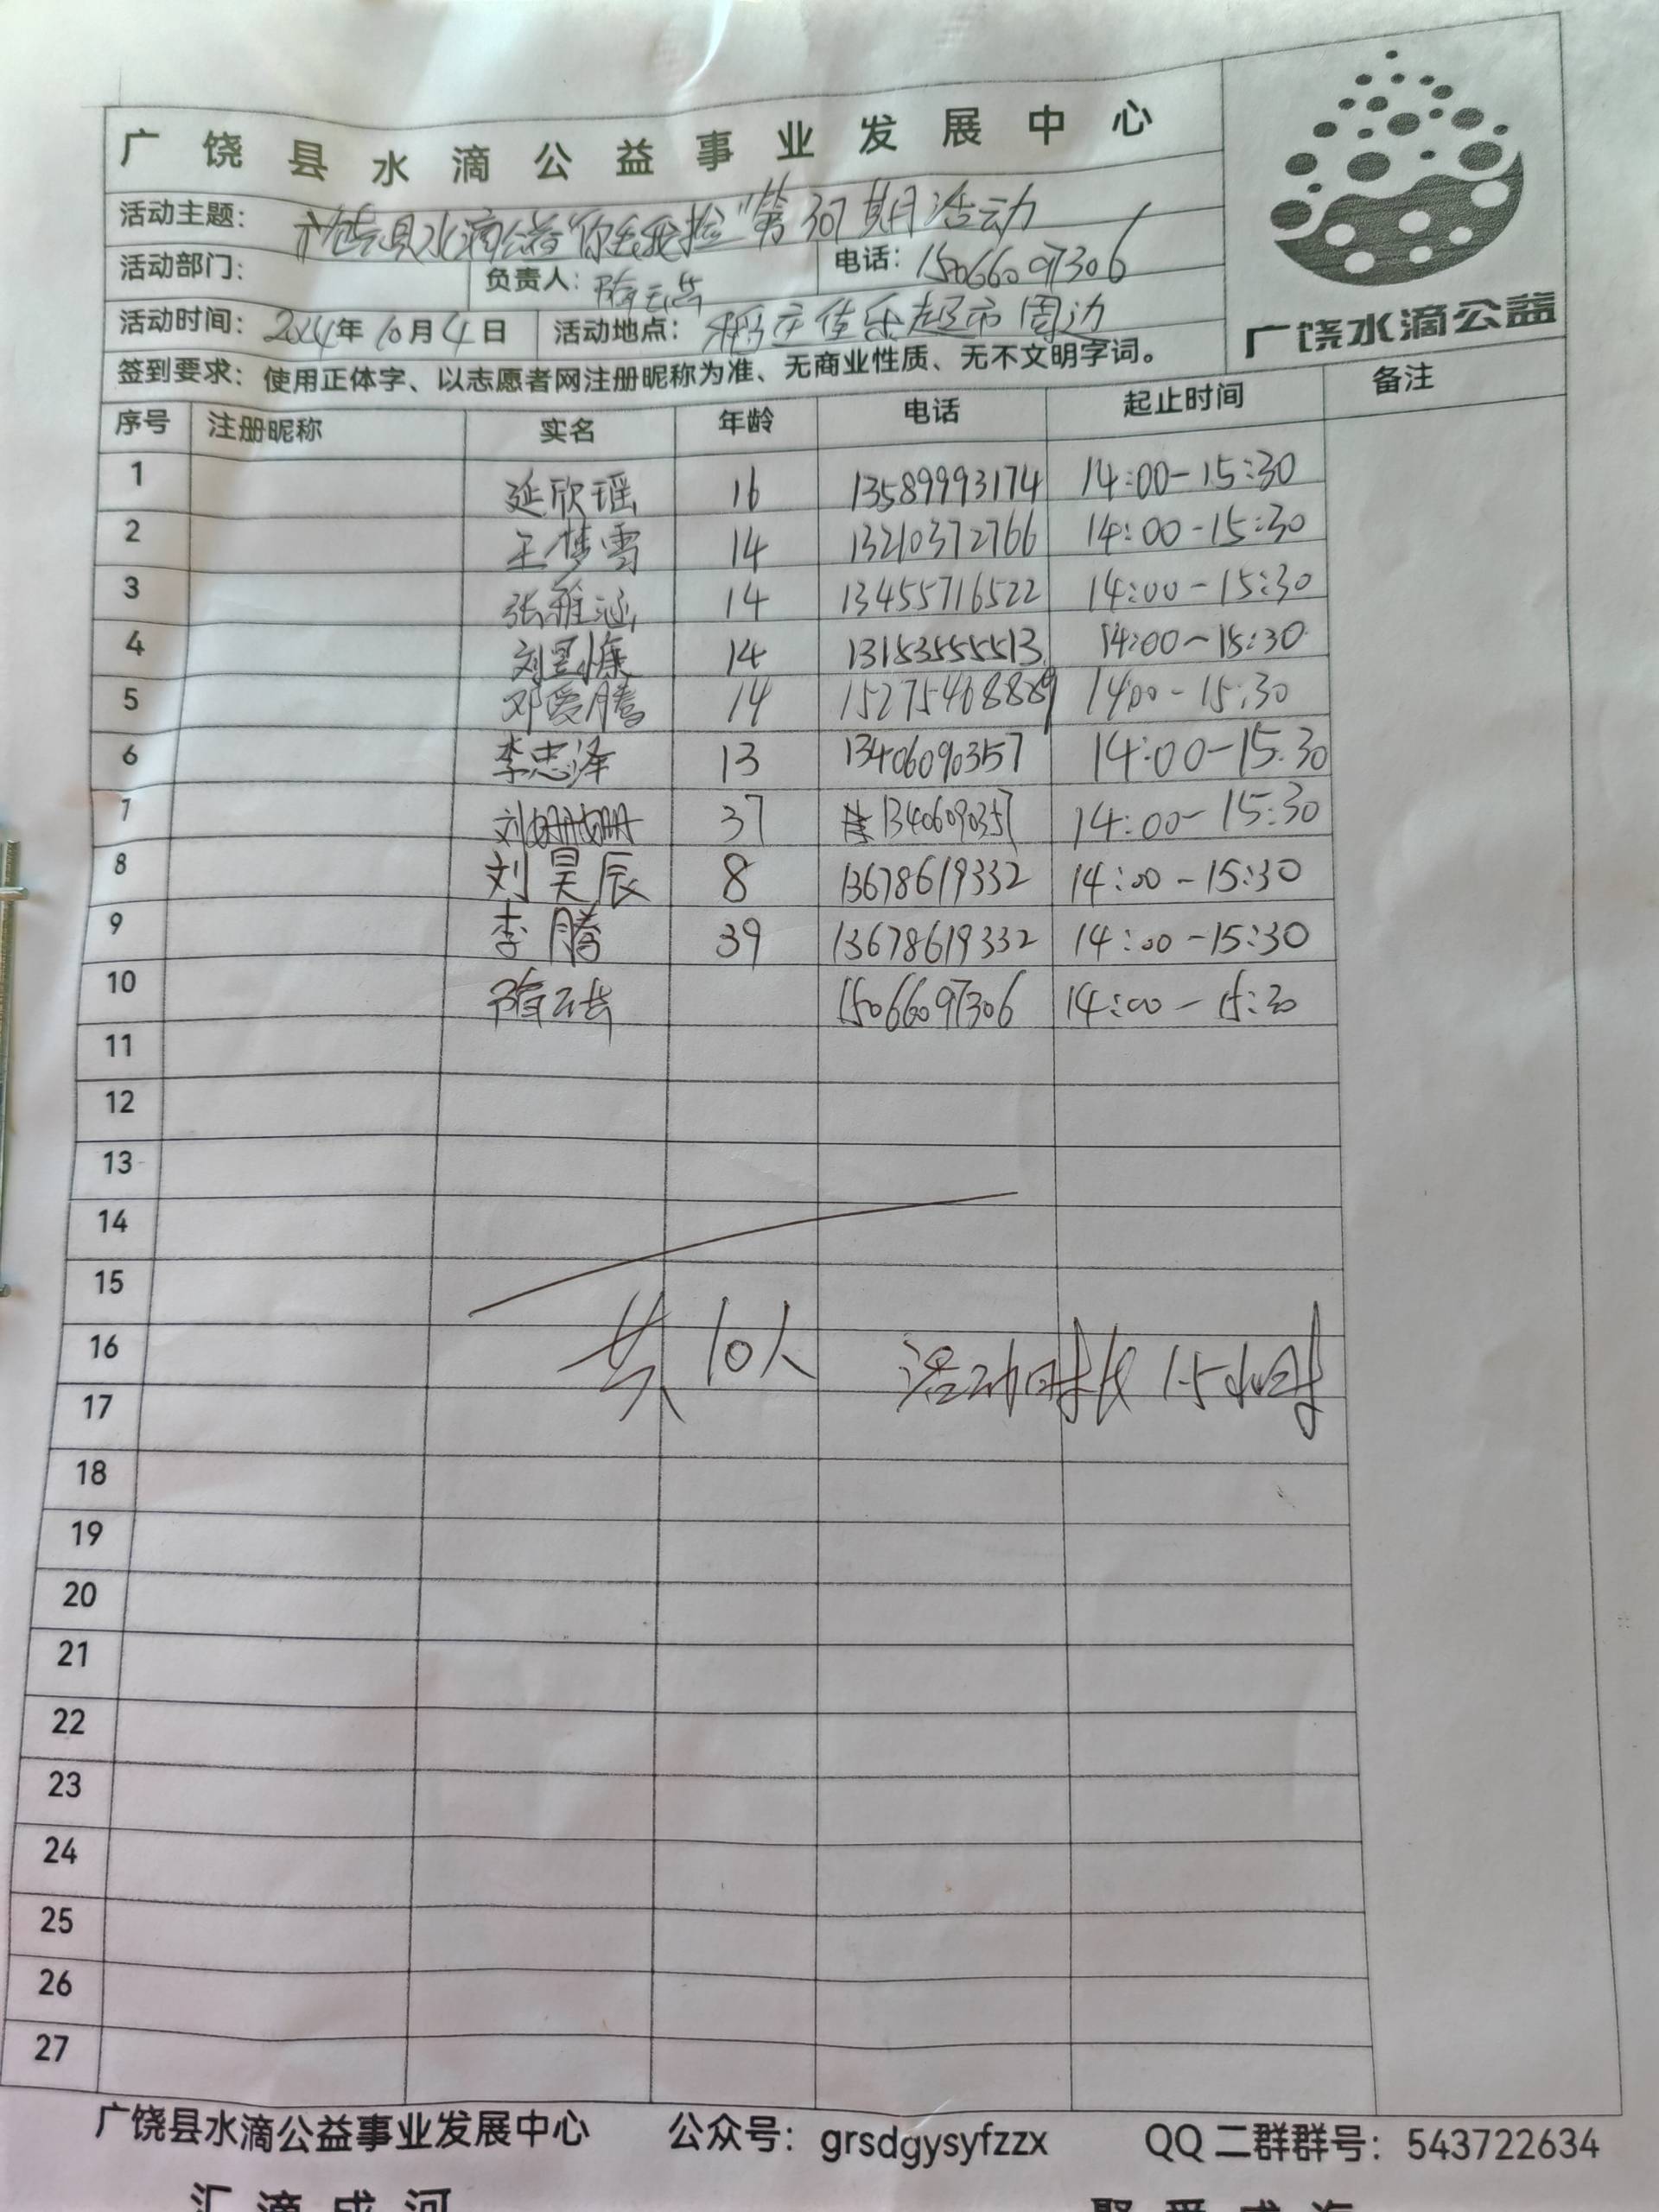 广饶县水滴公益事业发展中心
活动主题：广饶县水滴公益"你丢我捡"第307期活动
活动部门： 负责人： 电话：15066097306
活动时间：2024年10月4日 活动地点： 佳乐超市周边
广饶水滴公益
签到要求：使用正体字、以志愿者网注册昵称为准、无商业性质、无不文明字词。
序号 注册昵称 实名 年龄 电话 起止时间 备注
1 延欣瑶 16 13589993174 14:00-15:30
2 王梦雪 14 13210372766 14:00-15:30
3 张雅涵 14 13455716522 14:00-15:30
4 刘昱慷 14 13153555513 14:00-15:30
5 邓爱腾 14 15275468889 14:00-15:30
6 李忠泽 13 13406090357 14:00-15:30
7 刘姗姗 37 13406090357 14:00-15:30
8 刘昊辰 8 13678619332 14:00-15:30
9 李腾 39 13678619332 14:00-15:30
10 15066097306 14:00-15:30
11
12
13
14
15
16 共10人 活动时长1.5小时
17
18
19
20
21
22
23
24
25
26
27
广饶县水滴公益事业发展中心 公众号：grsdgysyfzzx QQ二群群号：543722634
汇滴成河 聚爱成海